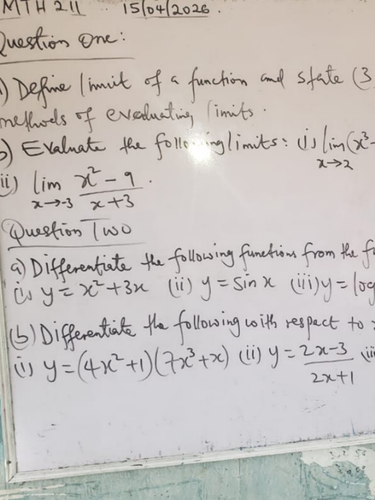 MTH 211 15/04/2026.
Question One:
a) Define limit of a function and state (3
methods of evaluating limits.
b) Evaluate the following limits: (i) lim (x³-
x→2
ii) lim x² - 9
x→-3 x+3
Question Two
a) Differentiate the following functions from the
(i) y = x² + 3x (ii) y = sin x (iii) y = log
(b) Differentiate the following with respect to
(i) y = (4x² + 1)(7x³ + x) (ii) y = 2x-3
2x+1